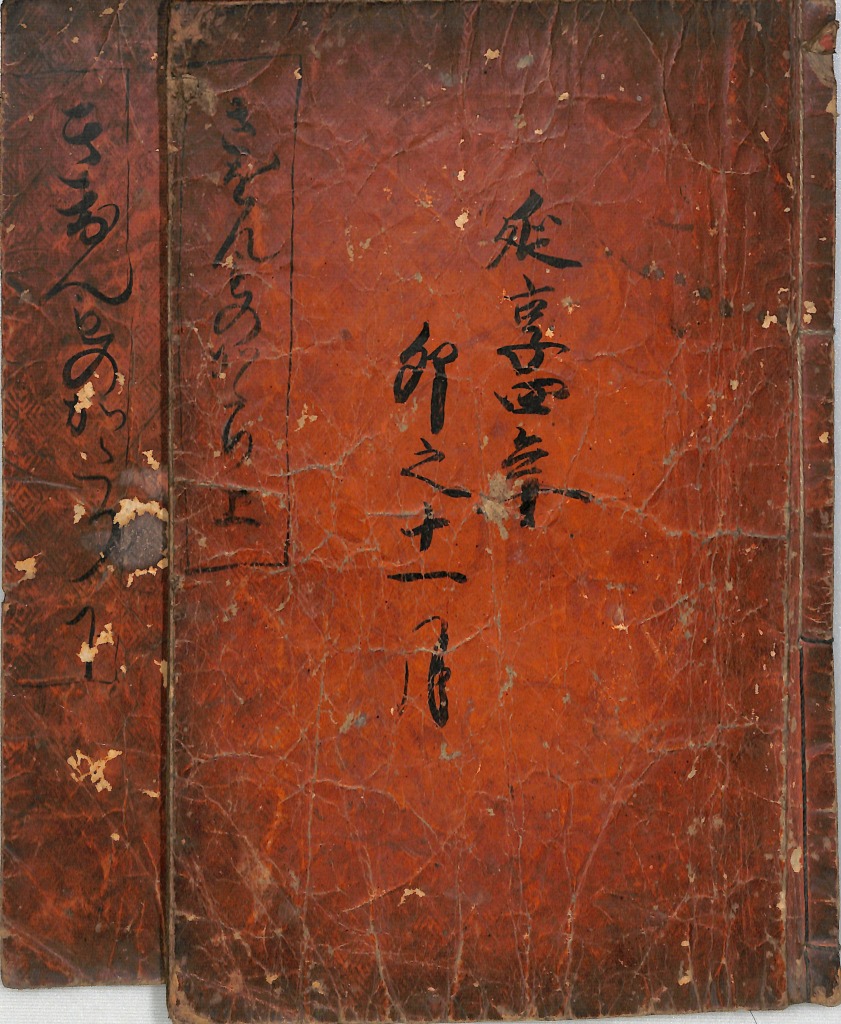 延享四年
卯之十一月
きをんものかたり 上
きをんものかたり 下